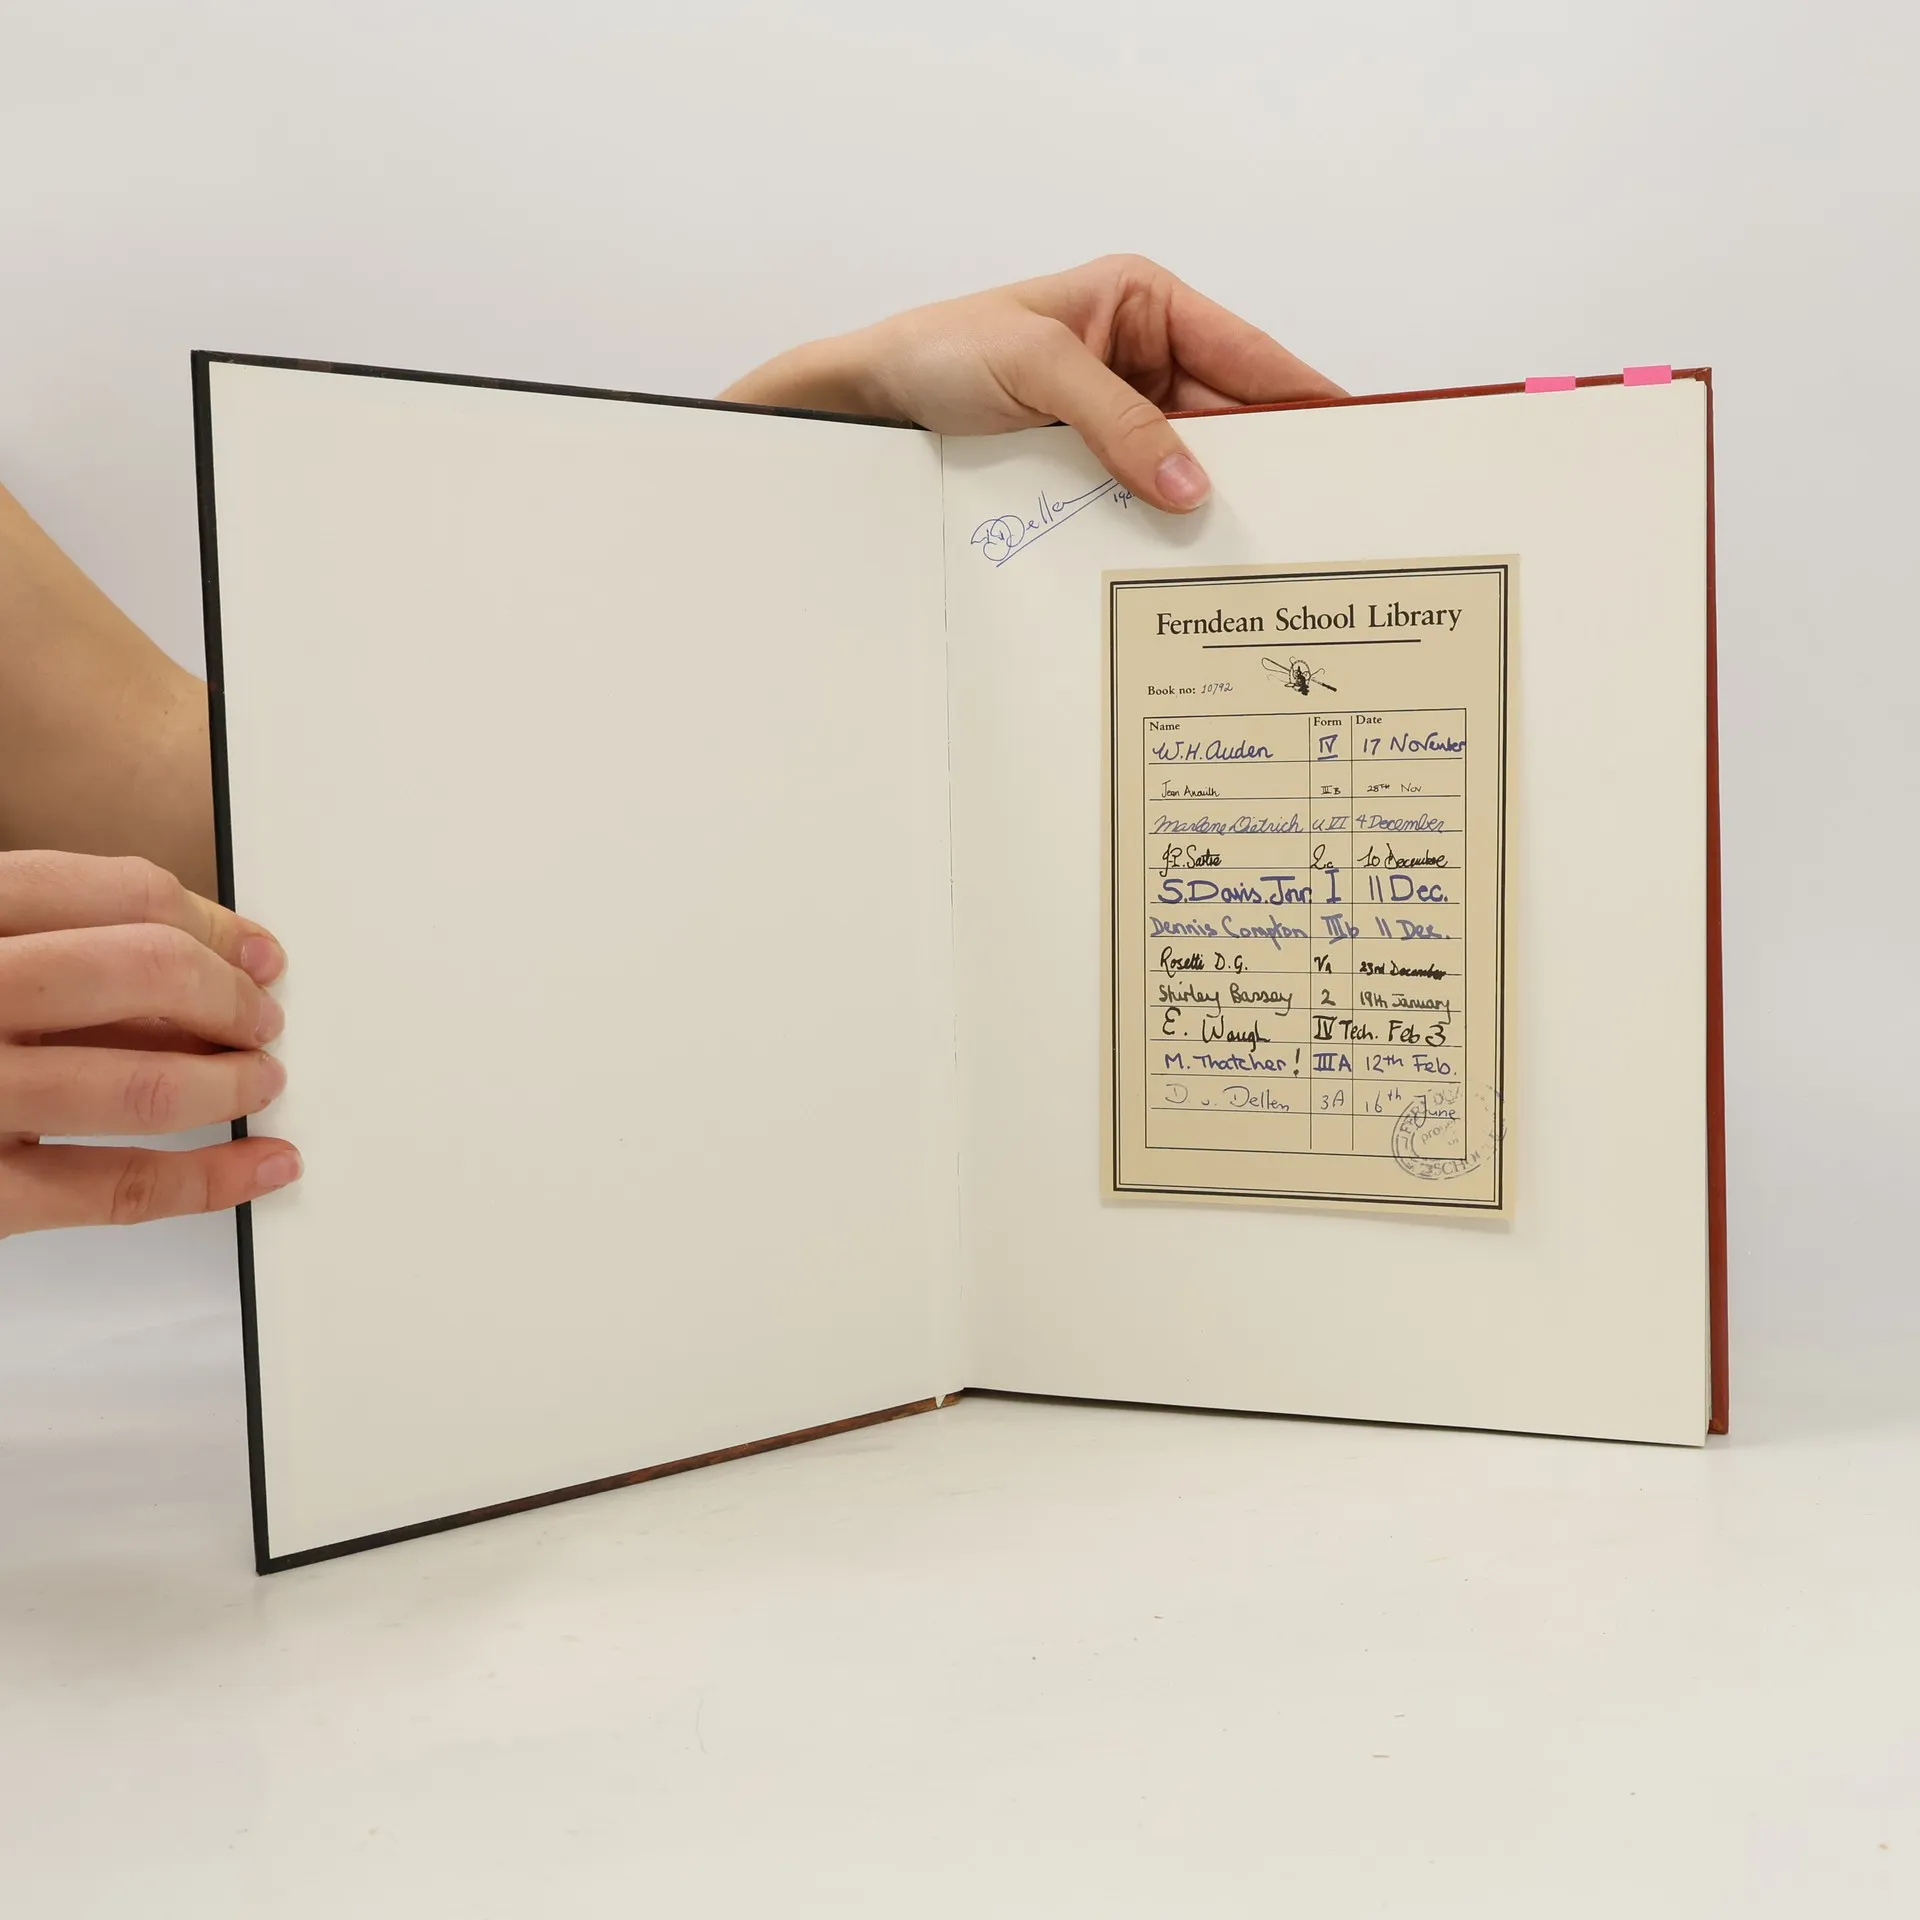 Dellen
Ferndean School Library
Book no: 10792
Name Form Date
W.H. Auden IV 17 November
Jean Anouilh III B 28TH Nov
Marlene Dietrich U VI 4 December
J-P. Sartre 2c 10 Decembre
S. Davis. Jnr. I 11 Dec.
Dennis Compton IIIb 11 Dec.
Rosetti D.G. Va 23rd December
Shirley Bassey 2 19th January
E. Waugh IV Tech. Feb 3
M. Thatcher! IIIA 12th Feb.
D. v. Dellen 3A 16th June
SCHOOL